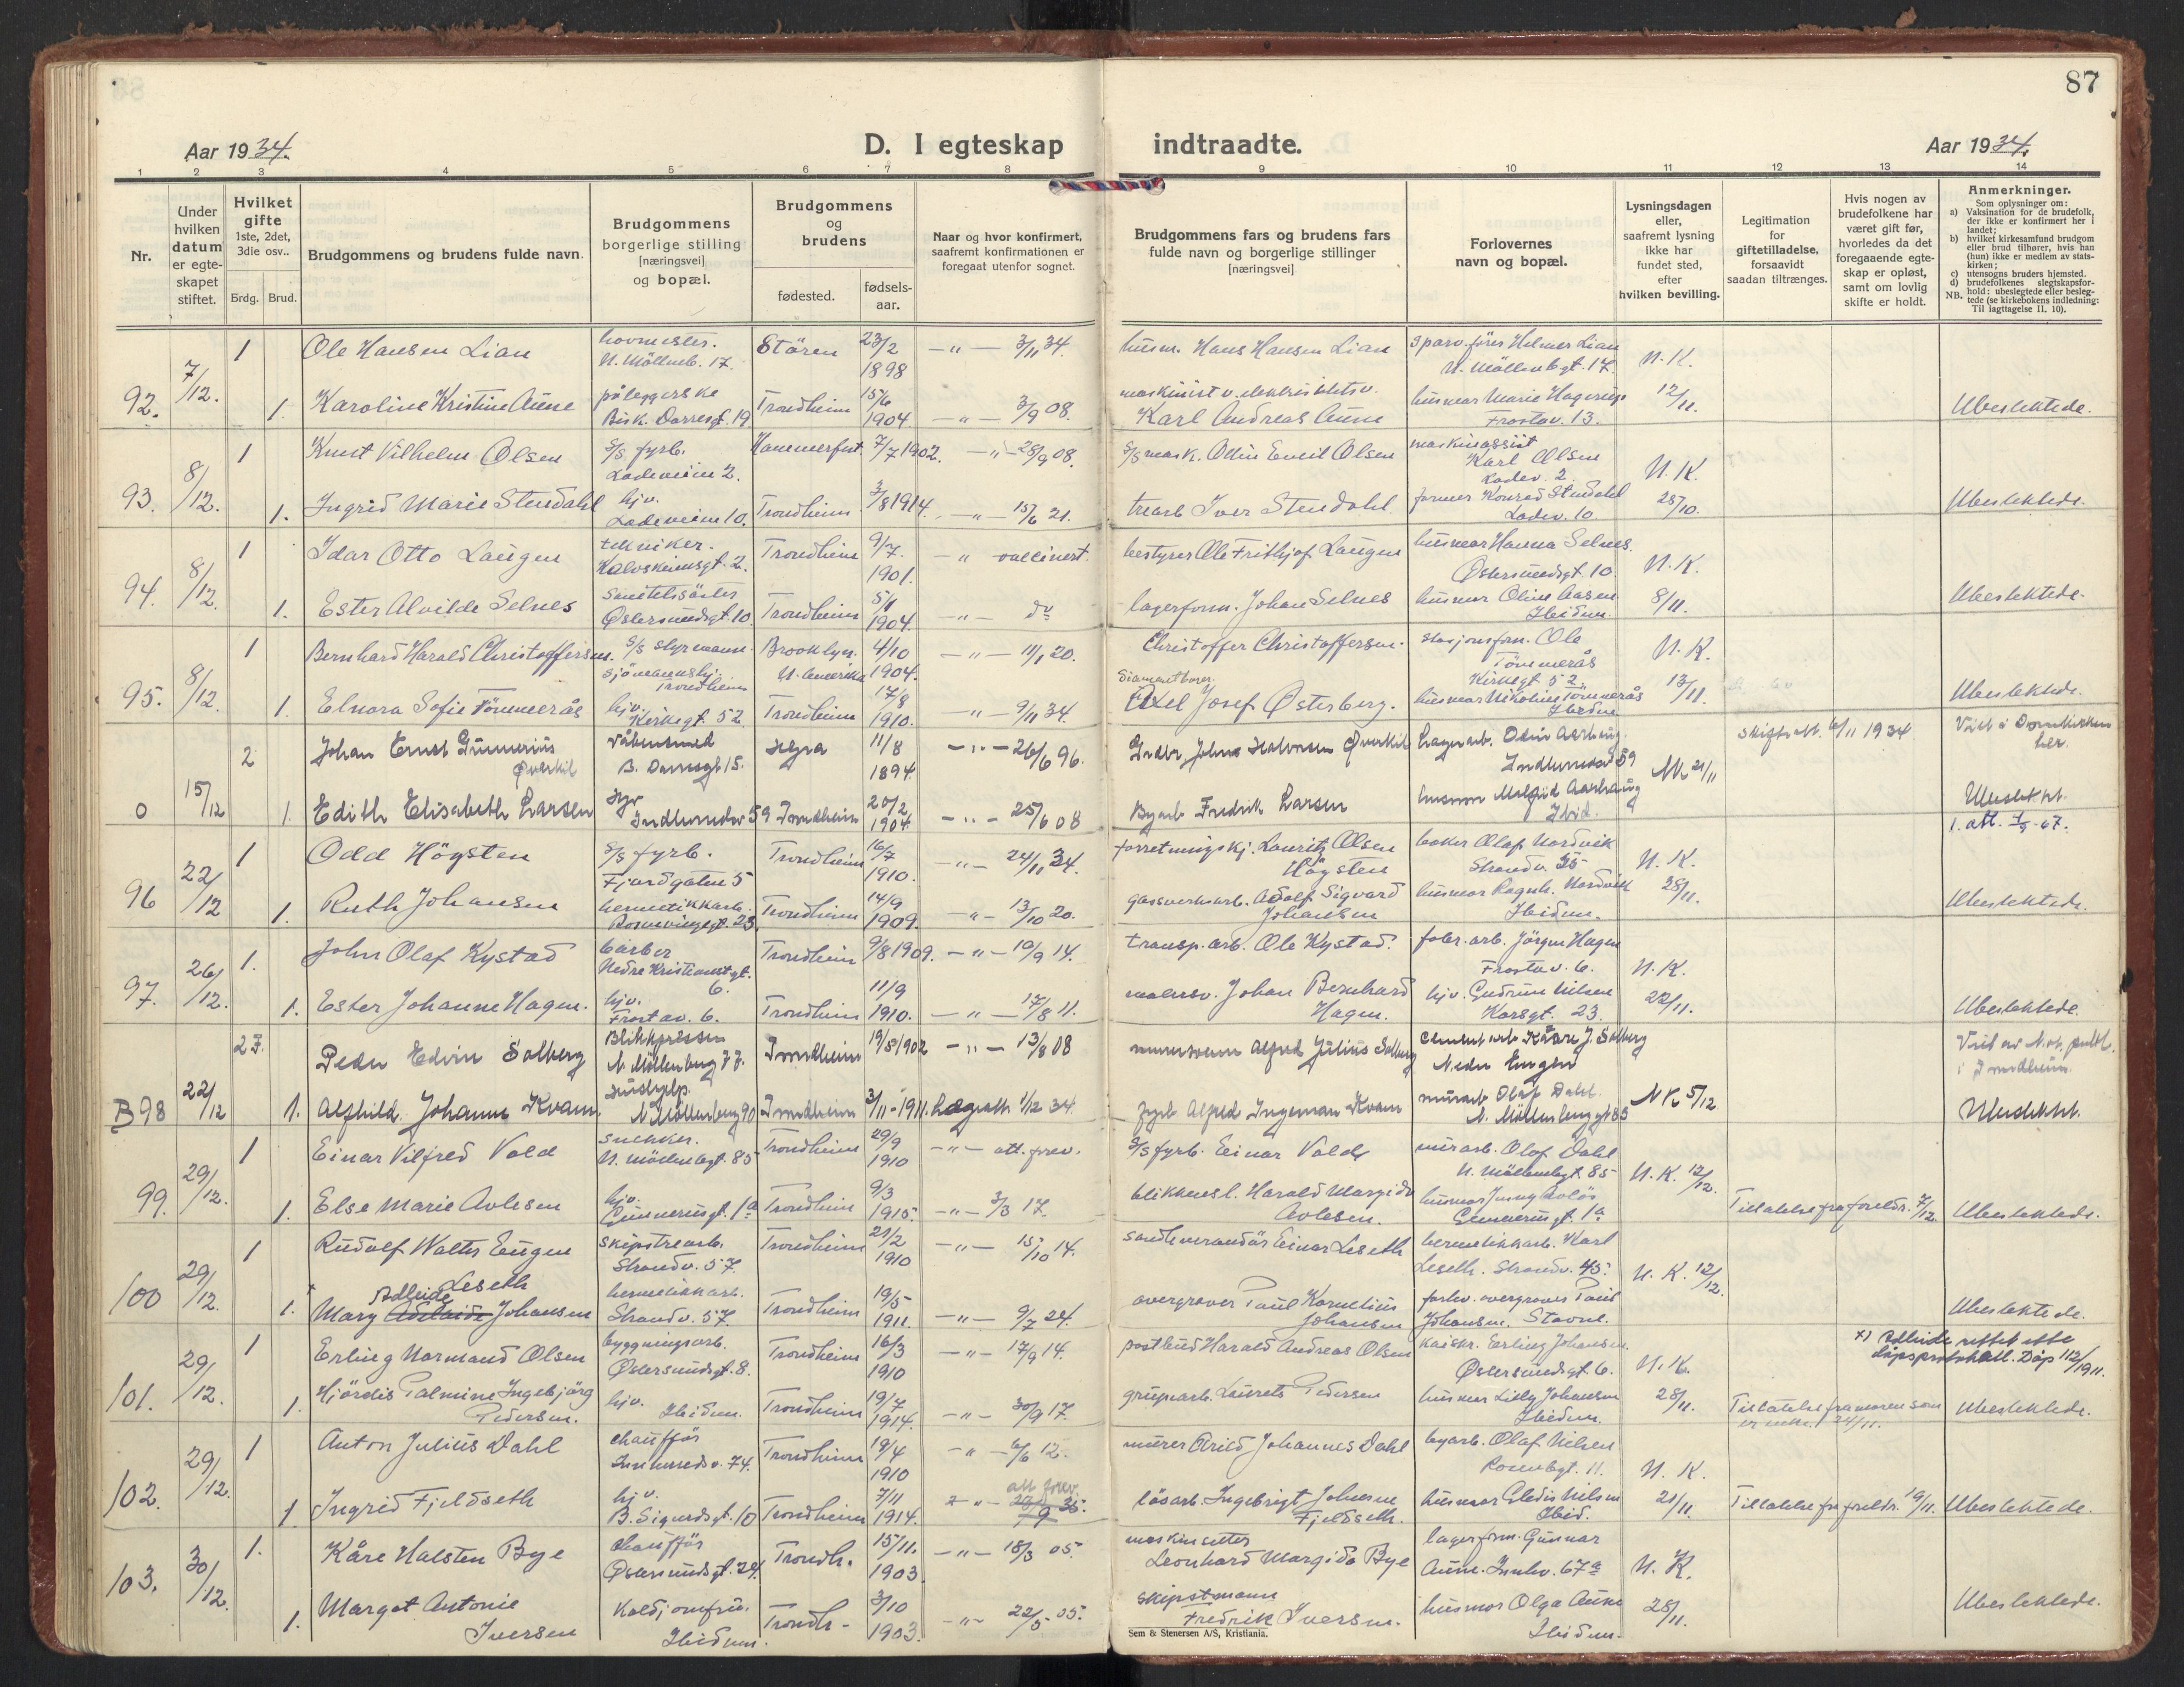 87
Aar 1934.
D. I egteskap indtraadte.
Aar 1934.
1 2 3 4 5 6 7 8 9 10 11 12 13 14
Nr.
Under hvilken datum er egteskapet stiftet.
Hvilket gifte 1ste, 2det, 3die osv..
Brdg. Brud.
Brudgommens og brudens fulde navn.
Brudgommens borgerlige stilling [næringsvei] og bopæl.
Brudgommens og brudens
fødested. fødselsaar.
Naar og hvor konfirmert, saafremt konfirmationen er foregaat utenfor sognet.
Brudgommens fars og brudens fars fulde navn og borgerlige stillinger [næringsvei]
Forlovernes navn og bopæl.
Lysningsdagen eller, saafremt lysning ikke har fundet sted, efter hvilken bevilling.
Legitimation for giftetilladelse, forsaavidt saadan tiltrænges.
Hvis nogen av brudefolkene har været gift før, hvorledes da det foregaaende egteskap er opløst, samt om lovlig skifte er holdt.
Anmerkninger.
Som oplysninger om:
a) Vaksination for de brudefolk, der ikke er konfirmert her i landet;
b) hvilket kirkesamfund brudgom eller brud tilhører, hvis han (hun) ikke er medlem av statskirken;
c) utensogns bruders hjemsted.
d) brudefolkenes slegtskapsforhold: ubeslegtede eller beslegtede (se kirkebokens indledning: Til iagttagelse 11, 10).
NB.
92. 7/12. 1 Ole Hansen Lian hovmester. N. Möllenb. 17. Stören 23/2 1898 -"- 3/11 34. husm. Hans Hansen Lian sparv. förer Helmer Lian N. Möllenbgt. 17. N.K.
1. Karoline Kristine Aune påleggerske Bisk. Darresgt. 19 Trondheim 15/6 1904 -"- 3/9 08. maskinist v. elektrisitetsv. Karl Andreas Aune husmor Marie Frostav. 13. 12/11. Ubeslektede.
93. 8/12. 1 Knut Vilhelm Olsen S/S fyrb. Ladeveien 2. Hammerfest 7/7 1902. -"- 28/9 08. S/S mask. Odin Emil Olsen maskinassist Karl Olsen Ladev. 2 N.K.
1. Ingrid Marie Stendahl hjv. Ladeveien 10. Trondheim 3/8 1914. -"- 15/6 21. trearb Iver Stendahl former Konrad Stendahl Ladev. 10 28/10. Ubeslektede.
94. 8/12. 1 Idar Otto Laugen tekniker. Kalvskinnsgt. 2. Trondheim 9/7. 1901. -"- vaccinert. bestyrer Ole Frithjof Laugen husmor Hanna Selnes. Östersundsgt. 10. N.K.
1. Ester Alvilde Selnes sanitetssöster Östersundsgt. 10 Trondheim 5/1 1904. -"- do lagerform. Johan Selnes husmor Oline Aasen Ibidem 8/11. Ubeslektede.
95. 8/12. 1 Bernhard Harald Christoffersen. S/S styrmann. sjömannshj. Trondheim Brooklyn. N. Amerika 4/10 1904. -"- 11/1 20. Christoffer Christoffersen. stasjonsfm. Ole Tömmerås Kirkegt 52. N.K.
1. Elnora Sofie Tömmerås hjv. Kirkegt. 52 Trondheim 17/8 1910. -"- 9/11 34. Diamantborer. Axel Josef Østerberg. husmor Nikoline Tömmerås Ibidem 13/11. Ubeslektede.
0 15/12 2 Johan Ernst Gunnerius Øverkil våbensmed B. Darresgt 15. Hegra 11/8 1894. -"- 26/6 96. Johan Halvorsen Øverkil Lagerarb. Odin Aarhaug Indherredsv 59 NK 21/11 Skifteatt. 6/11 1934 Viet i Domkirken her.
1. Edith Elisabeth Larsen Hjv Indherredsv 59 Trondheim 20/2 1904. -"- 25/6 08 Byarb Fredrik Larsen husmor Malfrid Aarhaug Ibid. Ubeslekt.
1. att. 1/9-67.
96 22/12 1 Odd Högsten S/S fyrb. Fjordgaten 5 Trondheim 16/7 1910. -"- 24/11 34. forretningskj. Lauritz Olsen Högsten baker Olaf Nordvik Strandv. 35 N.K.
1. Ruth Johansen hermetikkarb. Rosenvingesgt. 23. Trondheim 14/9 1909. -"- 13/10 20. gassverksarb. Adolf Sigvard Johansen husmor Ragnh. Nordvik Ibidem. 28/11. Ubeslektede.
97. 26/12. 1. John Olaf Kystad barber Nedre Kristianstgt. 6. Trondheim 9/8 1909. -"- 10/9 14. transp. arb. Ole Kystad. fabr. arb. Jörgen Hagen Frostav. 6. N.K.
1. Ester Johanne Hagen. hjv. Frostav. 6. Trondheim 11/9 1910. -"- 17/8 11. malersv. Johan Bernhard Hagen. hjv. Gudrun Nilsen Korsgt. 23. 22/11. Ubeslektede.
B 98 22/12 2 F. Peder Edvin Solberg Blikkpresser N. Möllenberg 77. Trondheim 19/5 1902 -"- 13/8 08 murersvenn Alfred Julius Solberg Cementarb Kåare J. Solberg Nedre Enger NK 5/12 Viet av N. ot. pulkt. i Trondheim.
1. Alfhild Johanne Kvam. Hushjelp. N Möllenberg 90 Trondheim 3/11-1911. Lægeatt 1/12 34. fyrb Alfred Ingeman Kvam murarb Olaf Dahl. N. Möllenberg gt 85 Ubeslekt.
99. 29/12. 1 Einar Vilfred Vold snekker. N. Möllenbgt. 85 Trondheim 29/9 1910 -"- att. frev. S/S fyrb. Einar Vold murarb. Olaf Dahl N. Möllenbgt. 85 N.K. 12/12.
1. Else Marie Avlesen hjv. Gunnerusgt. 1a Trondheim 9/3 1915. -"- 3/3 17. blikkensl. Harald Margido Avlesen. husmor Jenny Gunnerusgt. 1a Tillatelse fra foreldr. 7/12. Ubeslektede.
100 29/12. 1 Rudolf Walter Eugen Leseth skipstrearb. Strandv. 57. Trondheim 21/2 1910 -"- 15/10 14. Einar Leseth hermetikkarb. Karl Leseth. Strandv. 45. N.K. 12/12.
1. Mary Adleide Johansen hermetikkarb. Strandv. 57. Trondheim 19/5 1911. -"- 9/7 24. overgraver Paul Kornelius Johansen forhv. overgraver Paul Johansen. Stavne. Ubeslektede.
x) Adleide rettet efter dåpsprotokoll. Dåp 112/1911.
101. 29/12. 1 Erling Normand Olsen byggningsarb. Östersundsgt. 8. Trondheim 16/3 1910 -"- 17/9 14. postbud Harald Andreas Olsen Erling Johansen. Östersundsgt. 6. N.K.
1. Hjördis Palmine Ingebjörg Pedersen. hjv. Ibidem. Trondheim 19/7 1914. -"- 30/9 17. grupearb. Laurets Pedersen husmor Lilly Johansen Ibidem. 28/11. Tillatelse fra moren som er enke. 24/11. Ubeslektede.
102. 29/12. 1 Anton Julius Dahl chauffør Innherredsv. 74. Trondheim 19/4 1910 -"- 6/6 12. murer Arild Johannes Dahl byarb. Olaf Nilsen Rosenbgt. 11. N.K.
1 Ingrid Fjeldseth hjv. B. Sigurdsgt. 10 Trondheim 7/11 1914. -"- att. frev. 35. lösarb. Ingebrigt Johansen Fjeldseth. husmor Eldis Nilsen Ibid. 21/11. Tillatelse fra foreldr. 19/11. Ubeslektede.
103. 30/12. 1. Kåre Halsten Bye chauffør Östersundsgt. 24. Trondh. 15/11. 1903. -"- 18/3 05. maskinsetter Leonhard Margido Bye lagerform. Gunnar Aune. Innhv. 67a N.K.
1. Margot Antonie Iversen Koldjomfru. Ibidem. Trondh- 3/10 1903. -"- 22/5 05. skipstmann Fredrik Iversen. husmor Olga Aune Ibidem. 28/11. Ubeslektede.
Sem & Stenersen A/S, Kristiania.